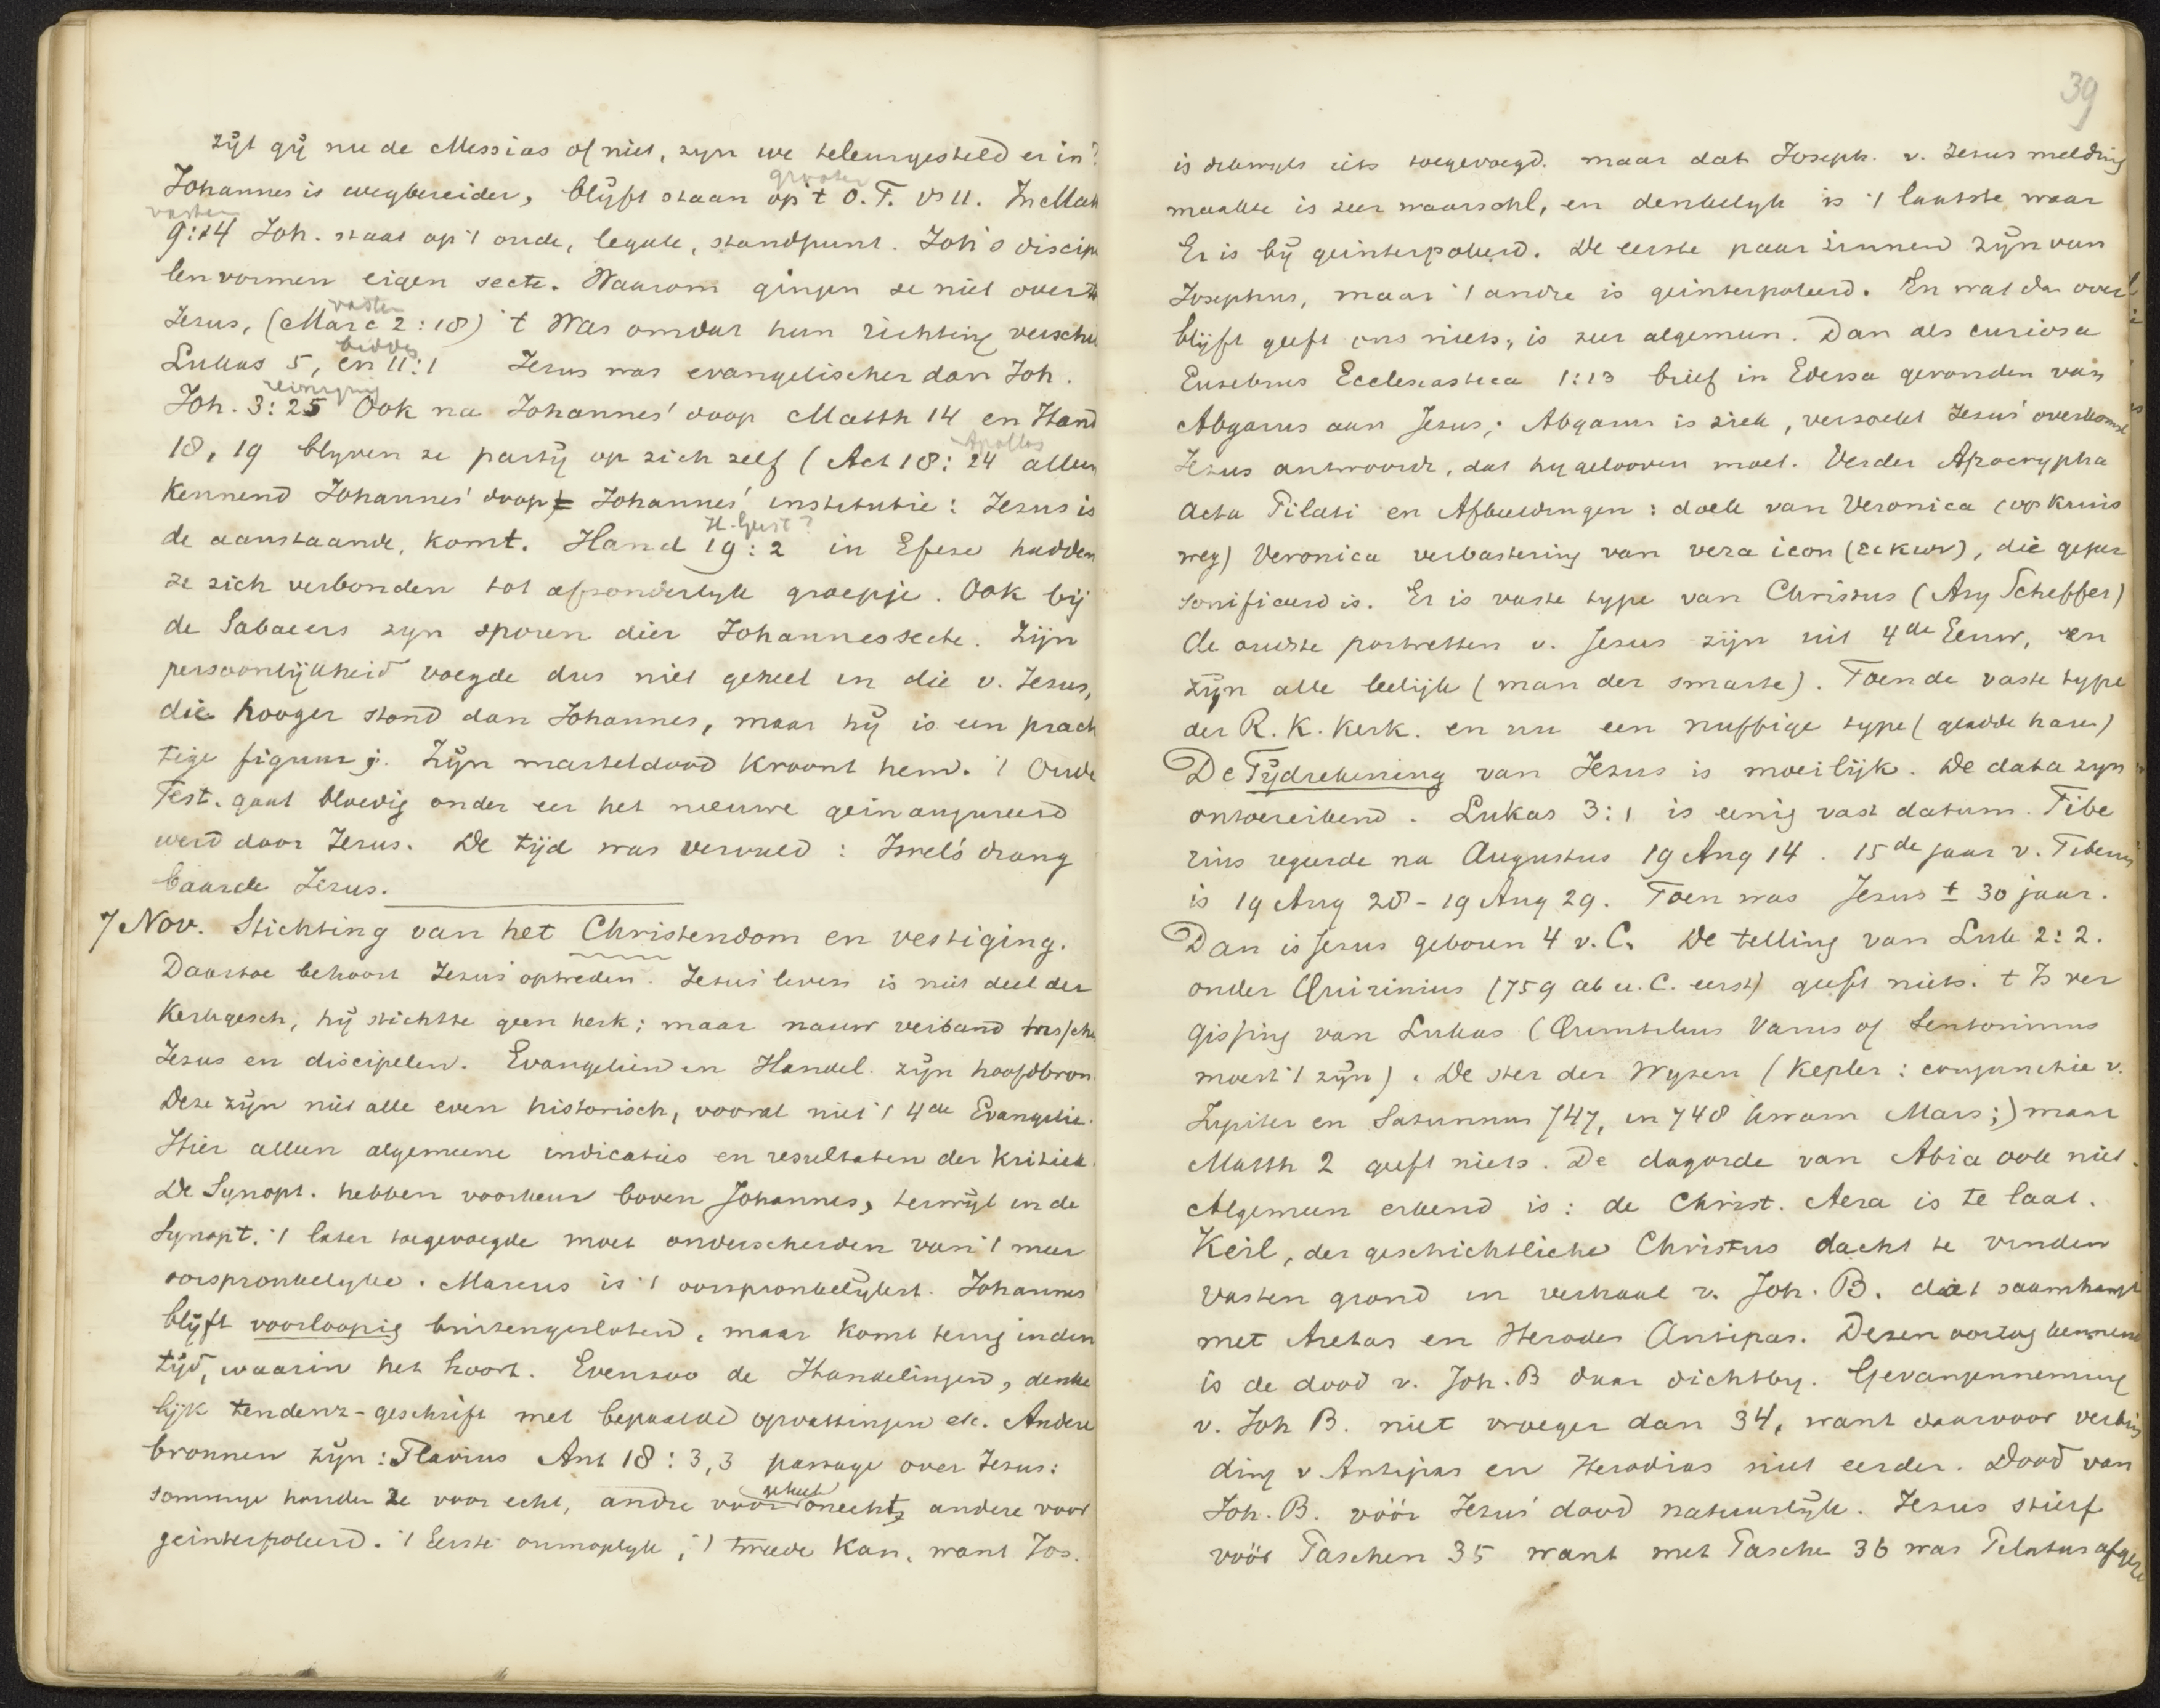 zijt gij nu de Messias of niet, zyn we teleurgesteld er in?
grooter
Johannes is wegbereider, blijft staan op 't O.T. vs 11. In Math
vasten
9:14 Joh. staat op 't oude, legale, standpunt. Joh's discipe
len vormen eigen secte. Waarom gingen ze niet over to
vasten
Jesus, (Marc 2:18) 't Was omdat hun richting verschi
bidden
Lukas 5, en 11:1 Jesus was evangelischer dan Joh.
reiniging
Joh. 3:25 Ook na Johannes' doop Matth 14 en Hand
Apollos
18, 19 blyven ze partij op zich zelf (Act 18:24 alleen
Kennend Johannes' doop = Johannes' institutie: Jezus is
H. Geest?
de aanstaande, komt. Hand 19:2 in Efeze hadden
ze zich verbonden tot afzonderlyk groepje. Ook bij
de Sabaeers zyn sporen dier Johannessecte. Zijn
persoonlijkheid voegde dus niet geheel in die v. Jezus,
die hooger stond dan Johannes, maar hij is een prach
tige figuur. Zijn marteldood kroont hem. 't Oude
Test. gaat bloedig onder eer het nieuwe geinaugureerd
werd door Jezus. De tijd was vervuld: Israels drang
baarde Jezus.
7 Nov. Stichting van het Christendom en vestiging.
Daartoe behoort Jezus' optreden. Jezus' leven is niet deel der
Kerkgesch, hij stichtte geen kerk; maar nauw verband tussche
Jezus en discipelen. Evangelien en Handel. zijn hoofdbron.
Deze zijn niet alle even historisch, vooral niet 't 4de Evangelie.
Hier alleen algemeene indicaties en resultaten der Kritiek.
De Synopt. hebben voorkeur boven Johannes, terwijl in de
Synopt. 't later toegevoegde moet onderscheiden van 't meer
oorspronkelyke. Marcus is 't oorspronkelijkst. Johannes
blijft voorloopig buitengesloten, maar komt terug in den
tijd, waarin het hoort. Evenzoo de Handelingen, denke
lijk tendenz-geschrift met bepaalde opvattingen etc. Andere
bronnen zijn: Flavius Ant 18:3,3 passage over Jezus:
geheel
sommige houden ze voor echt, andre voor onecht, andere voor
geinterpoleerd. 't Eerste onmogelyk, 't tweede kan, want Jos.
39
is dikwyls iets toegevoegd. maar dat Joseph. v. Jezus melding
maakte is zeer waarschl, en denkelyk is 't laatste waar
Er is bij geinterpoleerd. De eerste paar zinnen zijn van
Josephus, maar 't andre is geinterpoleerd. En wat da over
blijft geeft ons niets, is zeer algemeen. Dan als curiosa
Eusebius Ecclesiastica 1:13 brief in Edessa gevonden van
Abgarus aan Jesus; Abgarus is ziek, verzoekt Jezus' overkomst
Jezus antwoordt, dat hy gelooven moet. Verder Apocrypha
Acta Pilati en Afbeeldingen: doek van Veronica (op kruis
weg) Veronica verbastering van vera icon (εικων), die geper
sonificeerd is. Er is vaste type van Christus (Ary Scheffer)
de oudste portretten v. Jesus zijn uit 4de Eeuw, en
zijn alle leelijk (man der smarte). Toen de vaste type
der R.K. Kerk. en nu een nuffige type (gladde haren)
De Tijdrekening van Jezus is moeilijk. De data zyn
ontoereikend. Lukas 3:1 is eenig vast datum. Tibe
rius regeerde na Augustus 19 Aug 14. 15de jaar v. Tiberius
is 19 Aug 28 - 19 Aug 29. Toen was Jesus ± 30 jaar.
Dan is Jesus geboren 4 v.C. De telling van Luk 2:2.
onder Quirinius (759 ab u.C. eerst) geeft niets. 't Is ver
gissing van Lukas (Quintilius Varus of Sentonimus
moest 't zijn). De ster der Wyzen (Kepler: conjunctie v.
Jupiter en Saturnus 747, in 748 kwam Mars;) maar
Matth 2 geeft niets. De dagorde van Abia ook niet.
Algemeen erkend is: de Christ. Aera is te laat.
Keil, der geschichtliche Christus dacht te vinden
vasten grond in verhaal v. Joh. B. dat saamhangt
met Aretas en Herodes Antipas. Dezen oorlog kennend
is de dood v. Joh. B daar dichtby. Gevangenneming
v. Joh B. niet vroeger dan 34, want daarvoor verbin
ding v Antipas en Herodias niet eerder. Dood van
Joh. B. vóór Jezus' dood natuurlijk. Jezus stierf
vóór Paschen 35 want met Pasche 36 was Pilatus afgeze